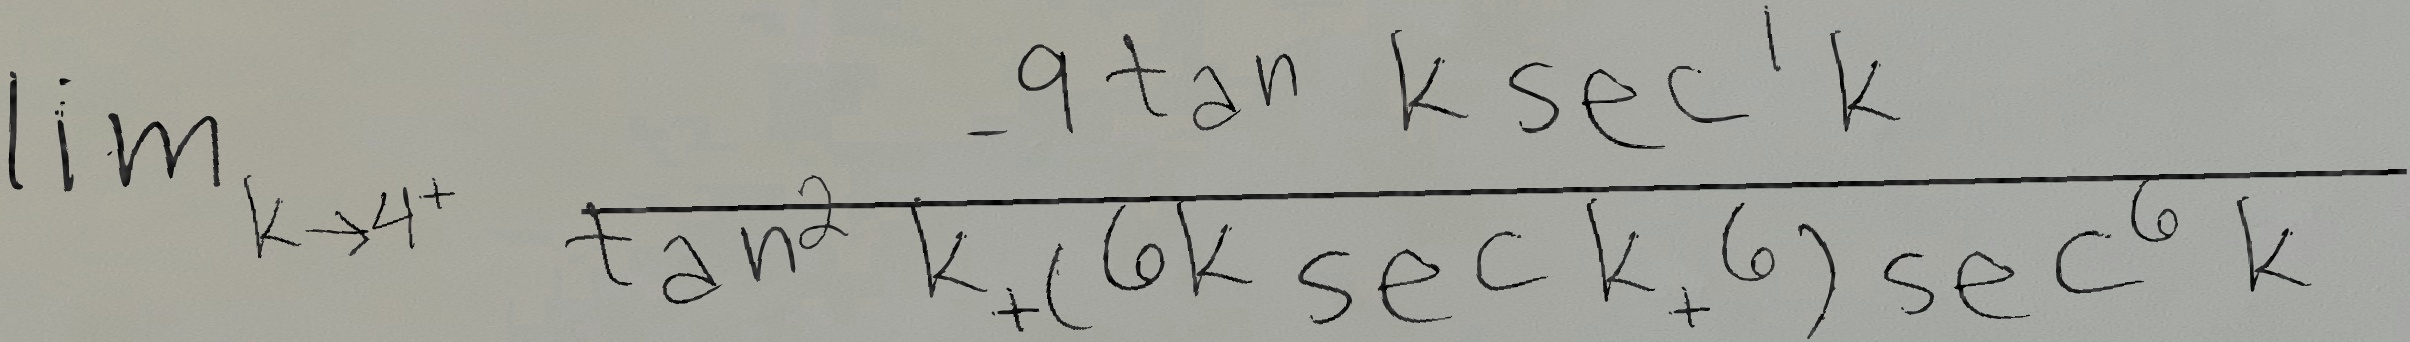 lim_{k→4^+} \frac{-9 tan k sec^1 k}{tan^2 k + (6k sec k + 6) sec^6 k}